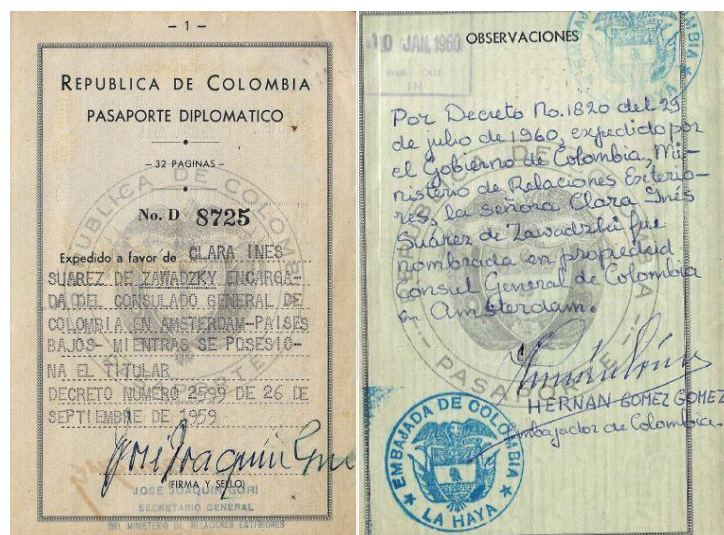 - 1 -
REPUBLICA DE COLOMBIA
PASAPORTE DIPLOMATICO
- 32 PAGINAS -
No. D 8725
Expedido a favor de CLARA INES
SUAREZ DE ZAWADZKY ENCARGA-
DA DEL CONSULADO GENERAL DE
COLOMBIA EN AMSTERDAM-PAISES
BAJOS- MIENTRAS SE POSESIO-
NA EL TITULAR
DECRETO NUMERO 2599 DE 26 DE
SEPTIEMBRE DE 1959
José Joaquín Gori
(FIRMA Y SELLO)
JOSE JOAQUIN GORI
SECRETARIO GENERAL
DEL MINISTERIO DE RELACIONES EXTERIORES
REPUBLICA DE COLOMBIA
PASAPORTE
10 JAN. 1960
OBSERVACIONES
Por Decreto No. 1820 del 29
de julio de 1960, expedido por
el Gobierno de Colombia, Mi-
nisterio de Relaciones Exterio-
res, la señora Clara Inés
Suárez de Zawadzky fue
nombrada en propiedad
Consul General de Colombia
en Amsterdam.
HERNAN GOMEZ GOMEZ
Embajador de Colombia.
EMBAJADA DE COLOMBIA
LA HAYA